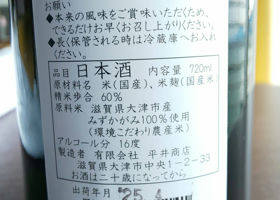 お願い
◆本来の風味をご賞味いただくため、
できるだけお早くお召し上がりください。
◆長く保管される時は冷蔵庫へお入れ
ください。
品目 日本酒 内容量 720ml
原材料名 米（国産）、米麹（国産米）
精米歩合 60%
原料米 滋賀県大津市産
みずかがみ100%使用
（環境こだわり農産米）
アルコール分 16度
製造者 有限会社 平井商店
滋賀県大津市中央1－2－33
お酒は二十歳になってから
出荷年月 '25.4